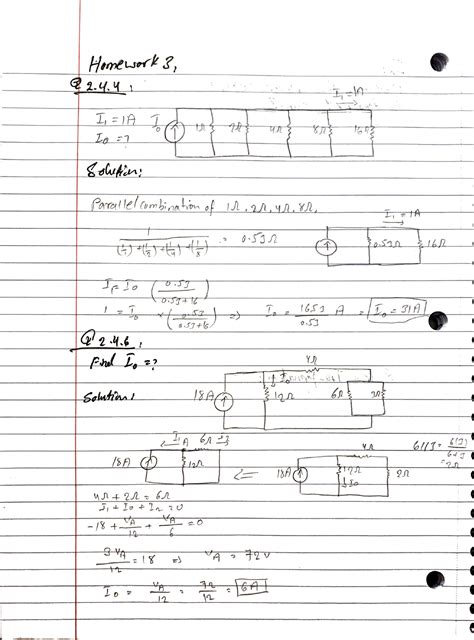 Homework 3,
Q 2.4.4 :
I₁ = 1A
I₁ = 1A
I₀ = ?
I₀
1Ω 2Ω 4Ω 8Ω 16Ω
Solution:
Parallel combination of 1Ω, 2Ω, 4Ω, 8Ω,
I₁ = 1A
1 / (1/1)+(1/2)+(1/4)+(1/8) = 0.53Ω
0.53Ω 16Ω
I₁ = I₀ (0.53 / 0.53+16)
1 = I₀ × (0.53 / 0.53+16) ⇒ I₀ = 16.53 / 0.53 A = I₀ = 31A
Q 2.4.6 :
Find I₀ = ?
4Ω
I₀
Solution:
18A 12Ω 6Ω 3Ω
I₁ A 6Ω
4Ω
6||3 = 6(3) / 6+3
= 2Ω
18A 12Ω
18A 12Ω 2Ω
I₀
4Ω + 2Ω = 6Ω
I₁ + I₀ + I₂ = 0
-18 + V_A/12 + V_A/6 = 0
3V_A/12 = 18 ⇒ V_A = 72V
I₀ = V_A/12 = 72/12 = 6A